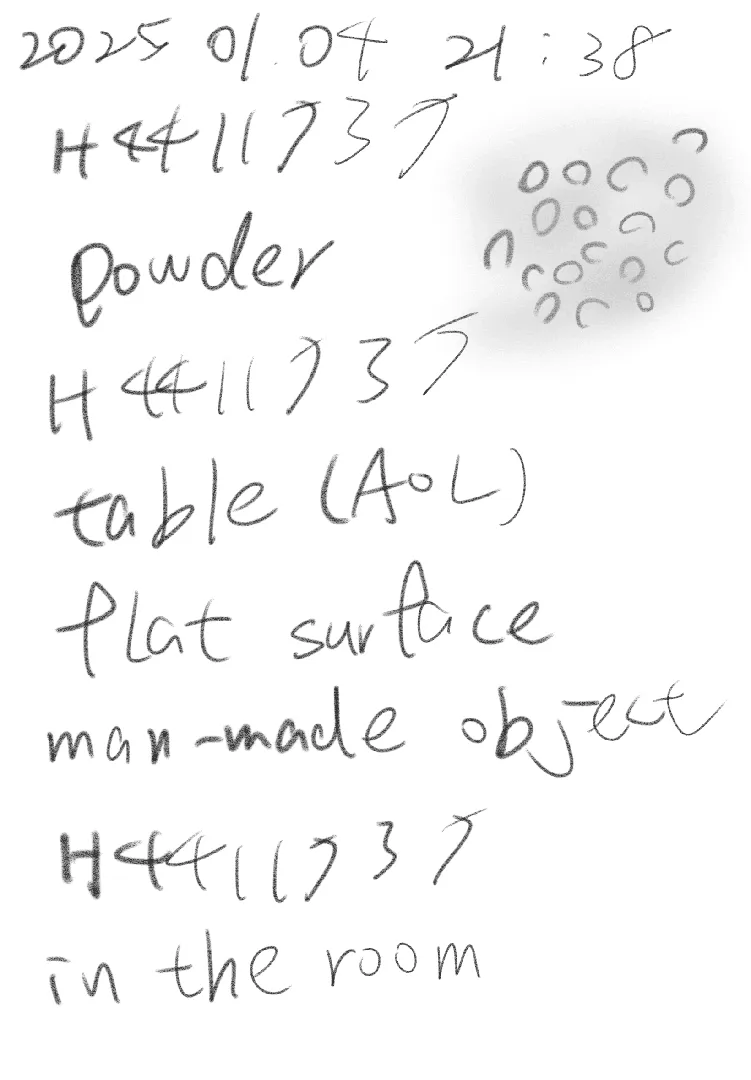 2025 01.04 21:38
H4411737
powder
H4411737
table (AOL)
flat surface
man-made object
H4411737
in the room